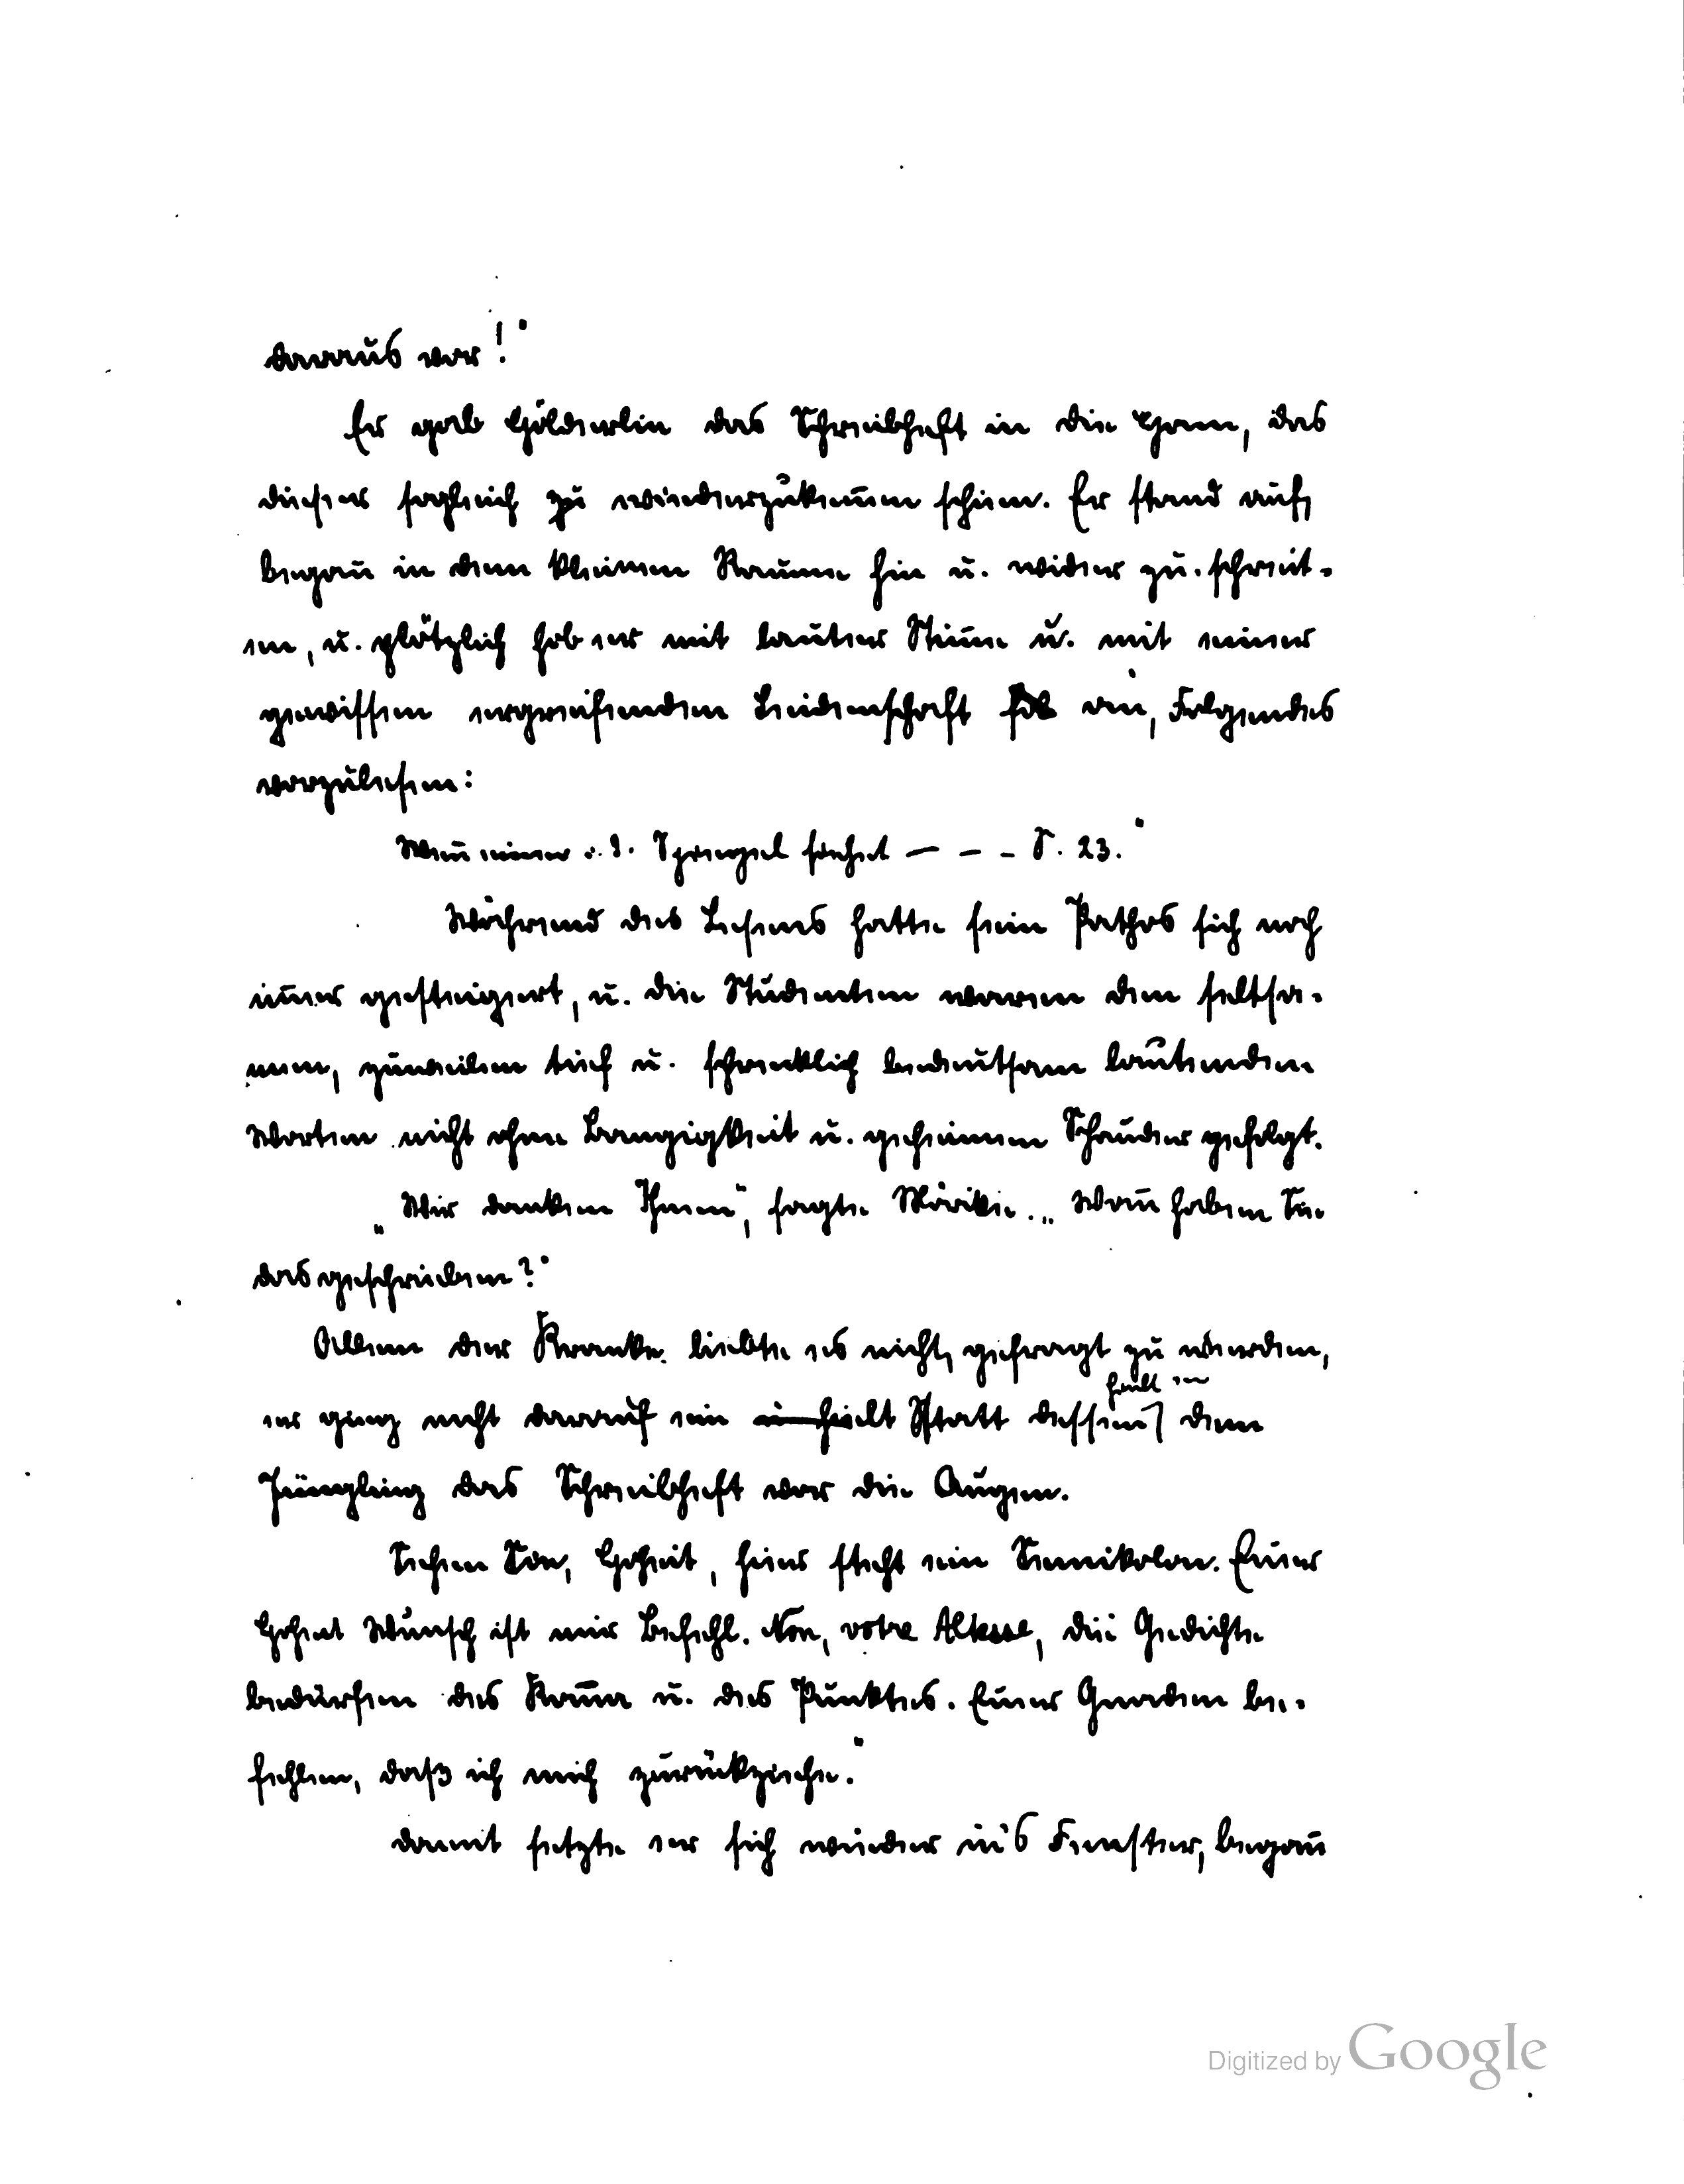 daraus vor!"
Er gab Hölderlin das Schreibheft in die Hann, das
dieser sogleich zu wiederzukennen schien. Er stand auf,
began̄ in dem kleinen Raume hin u. wider zu schreit-
en, u. plötzlich hob er mit lauter Stim̄e u. mit einer
gewissen ergreifenden Leidenschaft an, Folgendes
vorzulesen:
Wen̄ einer i. d. Spiegel siehet — – – S. 23."
Während des Lesens hatte sein Pathos sich noch
im̄er gesteigert, u. die Studenten waren den seltsa-
men, zuweilen tief u. schrecklich bedeutsam lautenden
Worten nicht ohne Bangigkeit u. geheimen Schauder gefolgt.
„Wir danken Ihnen", sagte Mörike. „Wan̄ haben Sie
das geschrieben?"
Allein der Kranke liebte es nicht, gefragt zu werden,
hielt er
er ging nicht darauf ein hielt Statt dessen dem
Jüngling das Schreibheft vor die Augen.
Sehen Sie, Hoheit, hier steht ein Semikolon. Euer
Hoheit Wunsch ist mir Befehl. Non, votre Altesse, die Gedichte
bedürfen des Kom̄a u. des Punktes. Euer Gnaden be-
fehlen, daß ich mich zurückziehe."
damit setzte er sich wieder in's Fenster, began̄
Digitized by Google